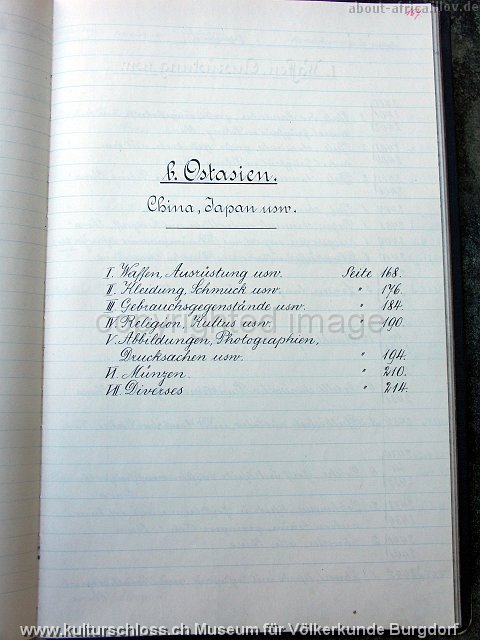 about-africa.ilov.de
187
b. Ostasien.
China, Japan usw.
I. Waffen, Ausrüstung usw. Seite 168.
II. Kleidung, Schmuck usw. " 176.
III. Gebrauchsgegenstände usw. " 184.
IV. Religion, Kultus usw. " 190.
V. Abbildungen, Photographien,
Drucksachen usw. " 194.
VI. Münzen. " 210.
VII. Diverses " 214.
copyrighted image
www.kulturschloss.ch Museum für Völkerkunde Burgdorf